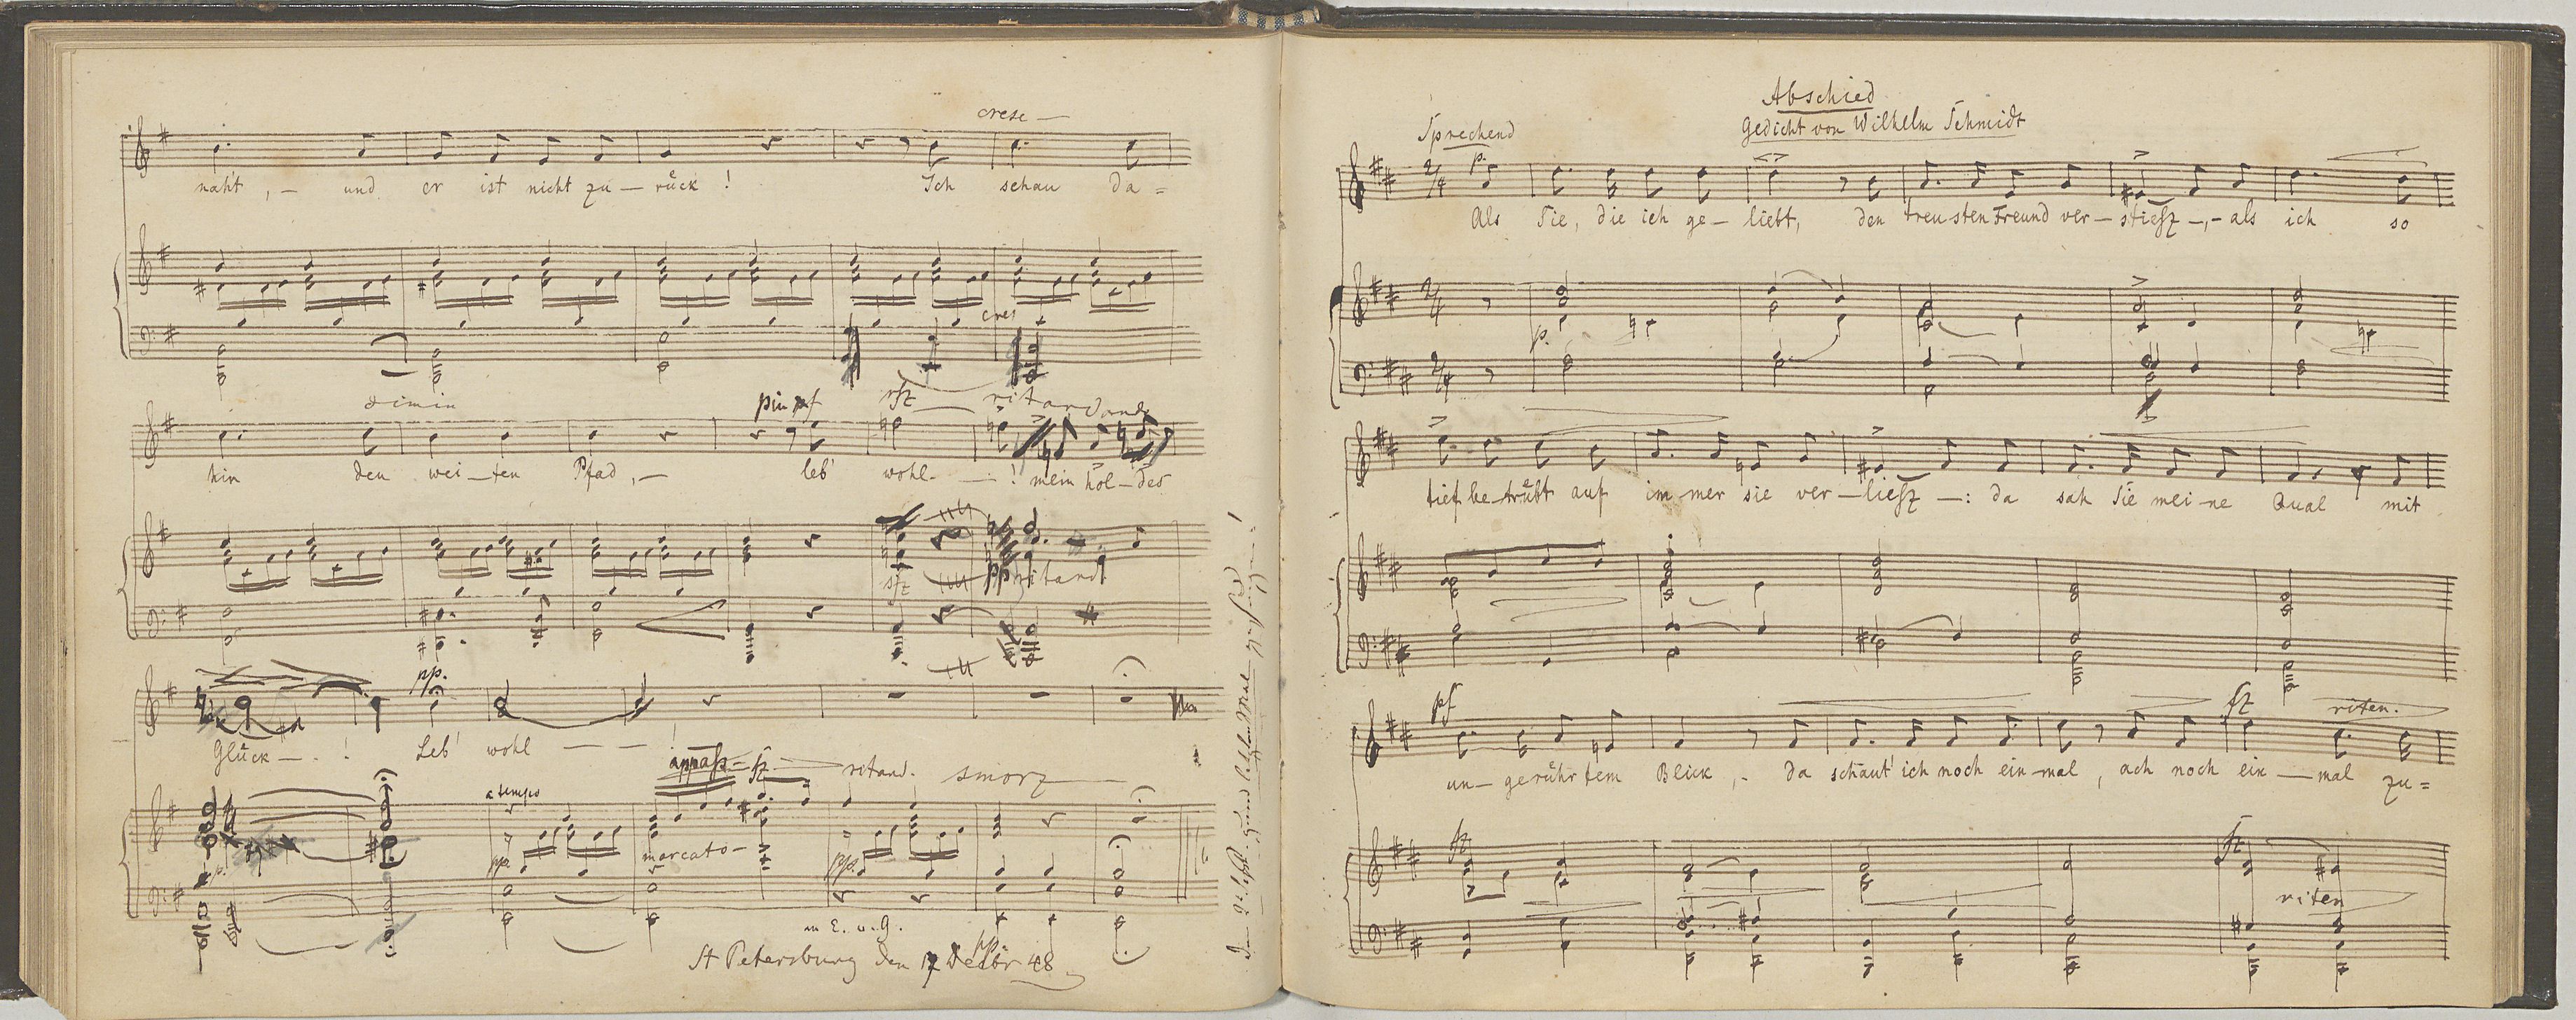 cresc —
naht, — und er ist nicht zu — rück! Ich schau da =
cres
dimin più pf rfz ritardando
hin den wei — ten Pfad, — leb' wohl — —! mein hol — des
sfz pp ritard
pp.
Glück — . ! Leb' wohl — — — !
a tempo appass = fz ritard. smorz
p. pp. marcato — pp.
m E. u. G.
pp
St Petersburg den 17 Decbr 48
Abschied
Gedicht von Wilhelm Schmidt
Sprechend
2/4 p.
Als Sie, die ich ge — liebt, den treusten Freund ver — stieß —, — als ich so
2/4 p.
2/4
tief be — trübt auf im — mer sie ver — ließ — : da sah Sie mei — ne Qual mit
pf fz riten.
un — gerührtem Blick, . da schaut' ich noch ein — mal, ach noch ein — mal zu =
fz fz
riten